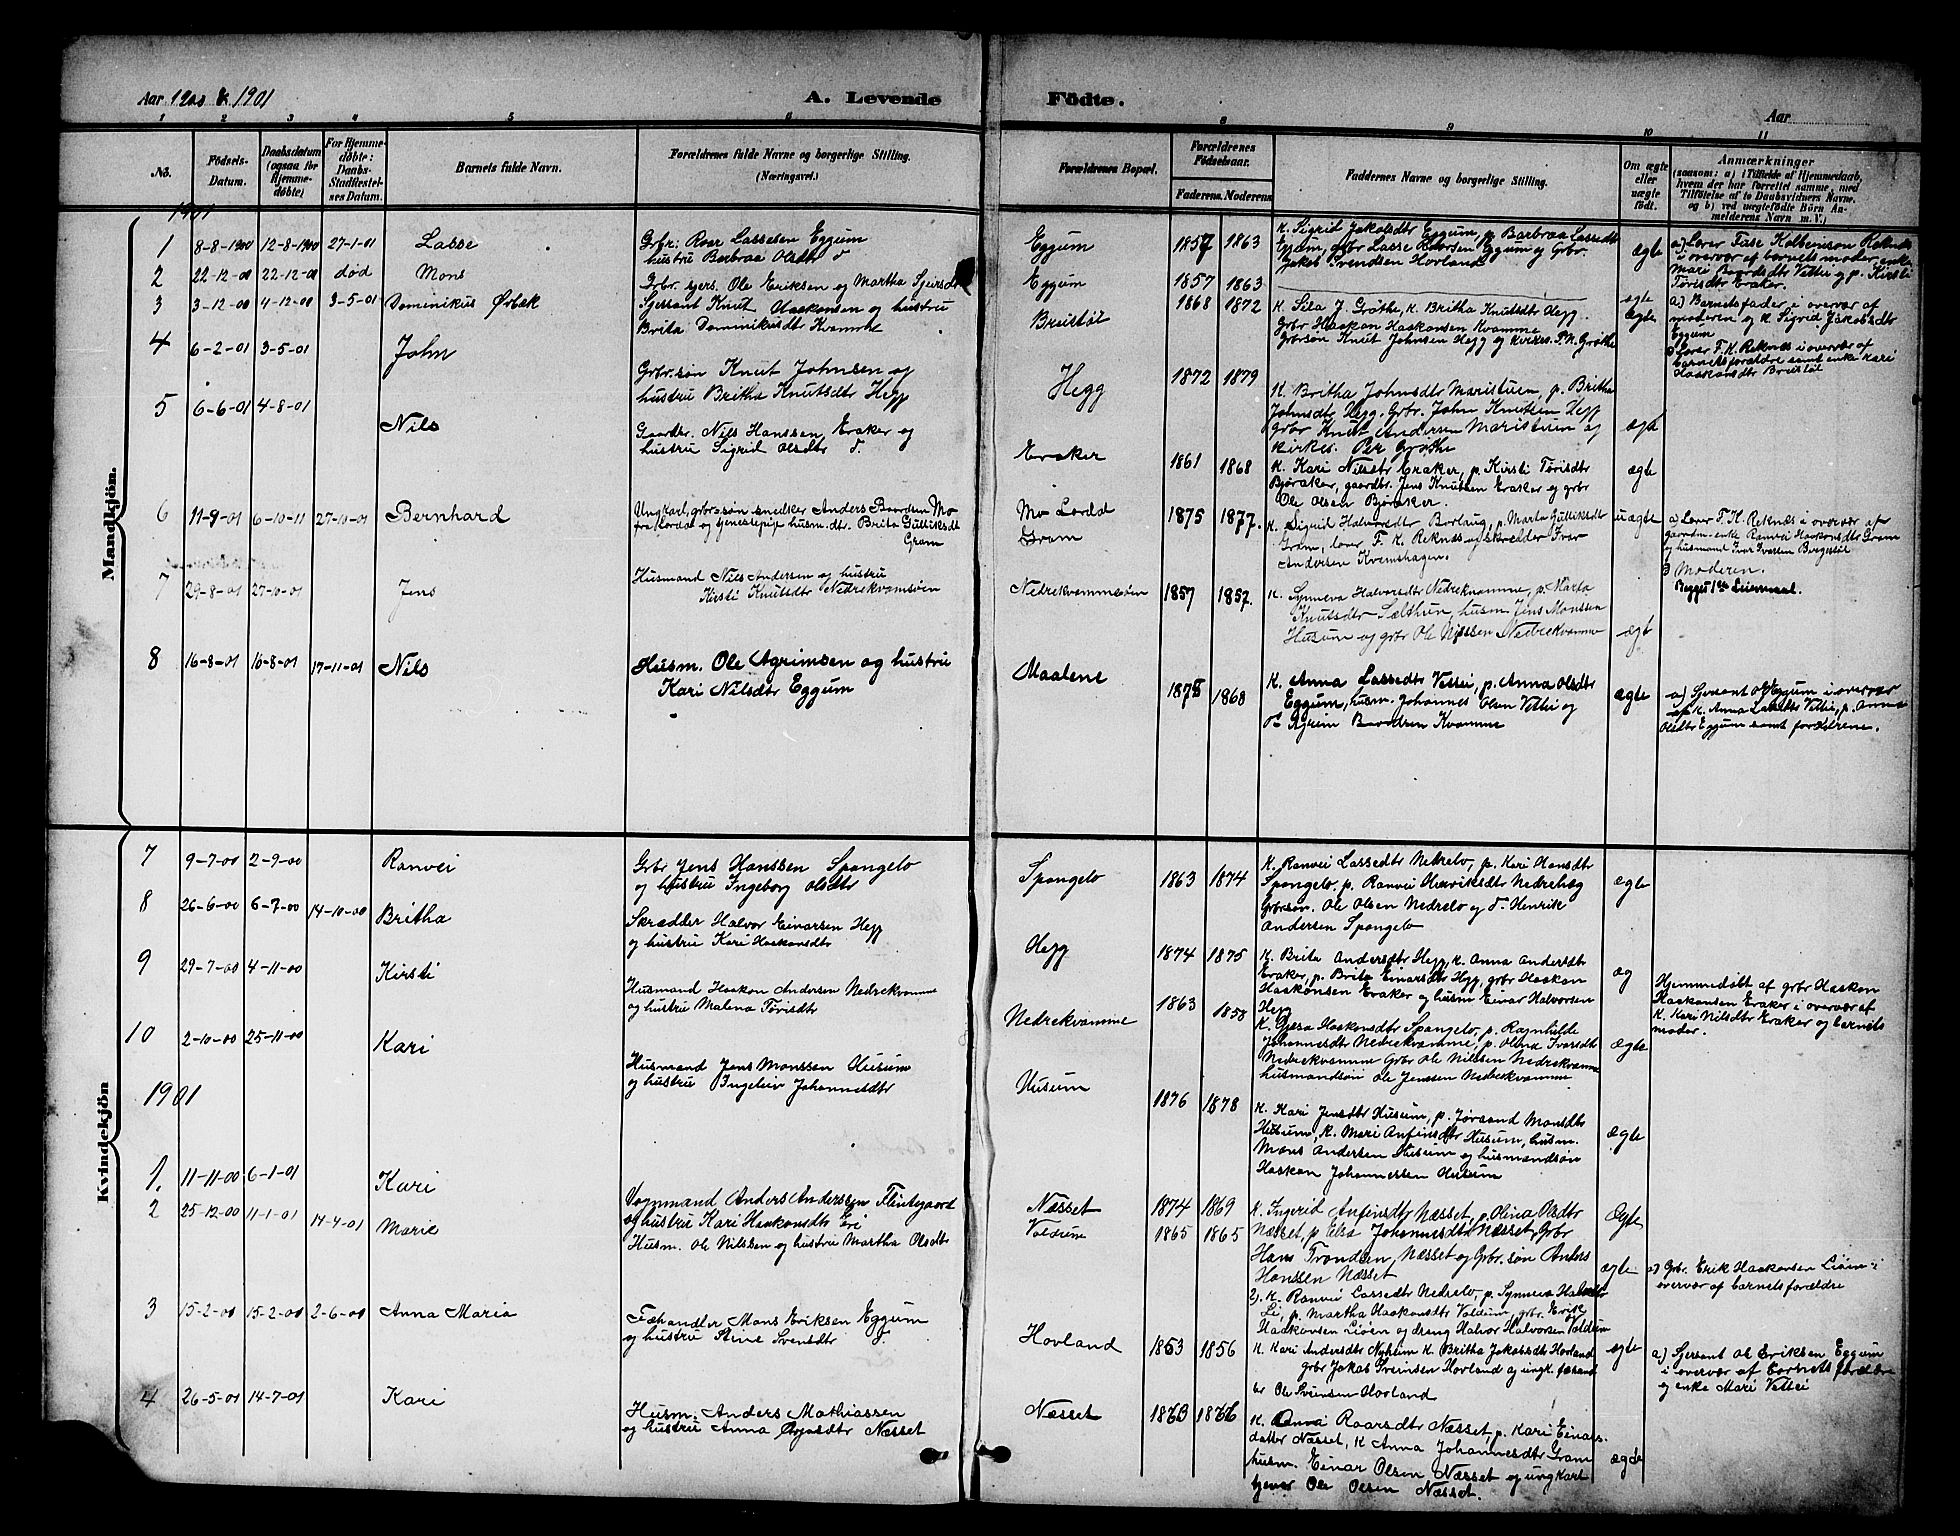 Aar 1900 & 1901
A. Levende
Födte.
Aar
1 2 3 4 5 6
8 9 10 11
No.
Födsels-Datum.
Daabsdatum (ogsaa for Hjemmedöbte)
For Hjemmedöbte: Daabs-Stadfæstelses Datum.
Barnets fulde Navn.
Forældrenes fulde Navne og borgerlige Stilling.
(Næringsvei.)
Forældrenes Bopæl.
Forældrenes Födselsaar.
Faderens. Moderens.
Faddernes Navne og borgerlige Stilling.
Om ægte eller uægte födt.
Anmærkninger
(saasom: a) i Tilfælde af Hjemmedaab,
hvem der har forrettet samme, med
Tilföielse af to Daabsvidners Navne.
og b) ved uægtefödte Börn An-
melderens Navn m. V.)
Mandkjön.
1901
1 8-8-1900 12-8-1900 27-1-01 Lasse
Grbr: Roar Lassesen Eggum
hustru Barbraa Olsdtr
Eggum 1857 1863
K. Sigrid Jakobsdtr Eggum, p. Barbraa Lassedtr
Eggum, grbr Lasse Roarsen Eggum og Grbr.
Jakob Svendsen Hovland
ægte
a) Lærer Kolbeinson Reknæs
i overvær af barnets moder, enke
Mari Baardsdtr Vetti og p. Kirsti
Törisdtr Eraker.
2 22-12-00 22-12-00 död Mons
Grbr. sjers. Ole Eriksen og Martha Sjursdtr
Eggum 1857 1863
ægte
3 3-12-00 4-12-00 3-5-01 Dominikus Örbæk
Sjersant Knut Haakonsen og hustru
Brita Dominikusdtr Kvamme
Breistöl 1868 1872
K. Sila J. Gröthe, K. Britha Knutsdtr Hegg
Grbr Haakon Haakonsen Kvamme
Grbrsön Knut Johnsen Hegg og kirkes. P. K. Gröthe
ægte
a) Barnets fader i overvær af
moderen og K. Sigrid Jakobsdtr
Eggum
Lærer F. K. Reknæs i overvær af
barnets forældre samt enke Kari
Haakonsdtr Breistöl
4 6-2-01 3-5-01 John
Grbr.sön Knut Johnsen og
hustru Britha Knutsdtr Hegg
Hegg 1872 1879
K. Britha Johnsdtr Maristuen, p. Britha
Johnsdtr Hegg. Grbr. John Knutsen Hegg
grbr Knut Andersen Maristuen og
kirkes. Per Gröthe
ægte
5 6-6-01 4-8-01 Nils
Gaardbr. Nils Hanssen Eraker og
hustru Sigrid Olsdtr
Eraker 1861 1868
K. Kari Nilsdtr Eraker, p. Kirsti Törisdtr
Björaker, gaardbr. Jens Knutsen Eraker og grbr
Ole Olsen Björaker.
ægte
6 11-9-01 6-10-11 27-10-01 Bernhard
Ungkarl, grbr-sön snedker Anders Baardsen Mo
fra Lærdal og tjenestepige husm.dtr. Brita Gulliksdtr
Gram
Mo Lærdal
Gram 1875 1877.
K. Sigrid Halvorsdtr Borlaug, p. Marta Gulliksdtr
Gram, lærer F. K. Reknæs og skrædder Ivar
Andersen Kvernshagen.
uægte
a) Lærer F. K. Reknæs i overvær af
gaardm. enke Ranvei Haakonsdtr Gram
og husmand Ivar Iversen
b) Moderen.
Begges 1ste Leiermaal.
7 29-8-01 27-10-01 Jens
Husmand Nils Andersen og hustru
Kirsti Knutsdtr Nedrekvamsöien
Nedrekvammesöien 1857 1857.
K. Synneva Halvorsdtr Nedrekvamme, p. Marta
Knutsdtr Sælthun, husm. Jens Monssen
Husum og grbr Ole Nilssen Nedrekvamme
ægte
8 16-8-01 16-8-01 17-11-01 Nils
Husm. Ole Agrimsen og hustru
Kari Nilsdtr Eggum
Maalene 1875 1868
K. Anna Lassedtr Vetti, p. Anna Olsdtr
Eggum, husm. Johannes Olsen Vetti og
Agrim Baardsen Kvamme
ægte
a) Sersant Ol Eggum i overvær
af K. Anna Lassedtr Vetti, p. Anna
Olsdtr Eggum samt forældrene.
Kvindekjön
7 9-7-00 2-9-00 Ranvei
Grbr Jens Hanssen Spangelo
og hustru Ingeborg Olsdtr
Spangelo 1863 1874
K. Ranvei Lassedtr Nedrelo, p. Kari Hansdtr
Spangelo, p. Ranvei Henriksdtr Nedrehæg
Grbrsön. Ole Olsen Nedrelo og d. Henrik
Andersen Spangelo
ægte
8 26-6-00 6-7-00 14-10-00 Britha
Skrædder Halvor Einarsen Hegg
og hustru Kari Haakonsdtr
Hegg 1874 1875
K. Brita Andersdtr Hegg, K. Anna Andersdtr
Eraker, p. Brita Einarsdtr Hegg, grbr Haakon
Haakonsen Eraker og husm Einar Halvorsen
Hegg
æg
Hjemmedöbt af grbr Haakon
Haakonsen Eraker i overvær af
K. Kari Nilsdtr Eraker og barnets
moder.
9 29-7-00 4-11-00 Kirsti
Husmand Haakon Andersen Nedrekvamme
og hustru Malena Törisdtr
Nedrekvamme 1863 1858
K. Gjesa Haakonsdtr Spangelo, p. Ragnhilde
Johannesdtr Nedrekvamme, p. Olina Ivarsdtr
Nedrekvamme Grbr Ole Nilssen Nedrekvamme
husmandsön Ole Jenssen Nedrekvamme.
ægte
10 2-10-00 25-11-00 Kari
Husmand Jens Monssen Husum
og hustru Ingeleiv Johannesdtr
Husum 1876 1878
K. Kari Jensdtr Husum, p. Jörand Monsdtr
Husum, K. Mari Anfinsdtr Husum, husm.
Mons Andersen Husum og husmandsön
Haakon Johannessen Husum
ægte
1901
1. 11-11-00 6-1-01 Kari
Vognmand Anders Anderssen Flintegaard
og hustru Kari Haakonsdtr Eri
Næsset 1874 1869
K. Ingerid Anfinsdtr Næsset, p. Olina Olsdtr
Næsset, p Elsa Johannesdtr Næsset, Grbr
Hans Trondsen, Næsset og Grbr. sön Anders
Hanssen Næsset
Ægte
2 25-12-00 11-1-01 14-4-01 Marie
Husm. Ole Nilssen og hustru Martha Olsdtr
Voldum 1865 1865
2). K. Ranvei Lassedtr Nedrelo, p. Synneva Halvorsdtr
Li, p. Martha Haakonsdtr Voldum, grbr. Erik
Haakonsen Liöen og dreng Halvor Halvorsen Voldum
ægte
a) Grbr. Erik Haakonsen Liöen i
overvær af barnets forældre
3 15-2-00 15-2-00 2-6-00 Anna Maria
Fæhandler Mons Eriksen Eggum
og hustru Stine Svendsdtr
Hovland 1853 1856
K. Kari Andersdtr Nyheim K. Britha Jakobsdtr Hovland
grbr Jakob Sveinsen Hovland og ungk. fæhand
ler Ole Svensen Hovland
ægte
a) Sjersant Ole Eriksen Eggum
i overvær af Barnets forældre
og enke Mari Vetti
4 26-5-01 14-7-01 Kari
Husm: Anders Mathiassen
og hustru Anna Roarsdtr Næsset
Næsset 1873 1876
K. Anna Roarsdtr Næsset, p. Kari Einars-
datter Næsset, K Anna Johannesdtr Gram
husm. Einar Olsen Næsset og ungkarl
Ole Olsen Næsset.
ægte